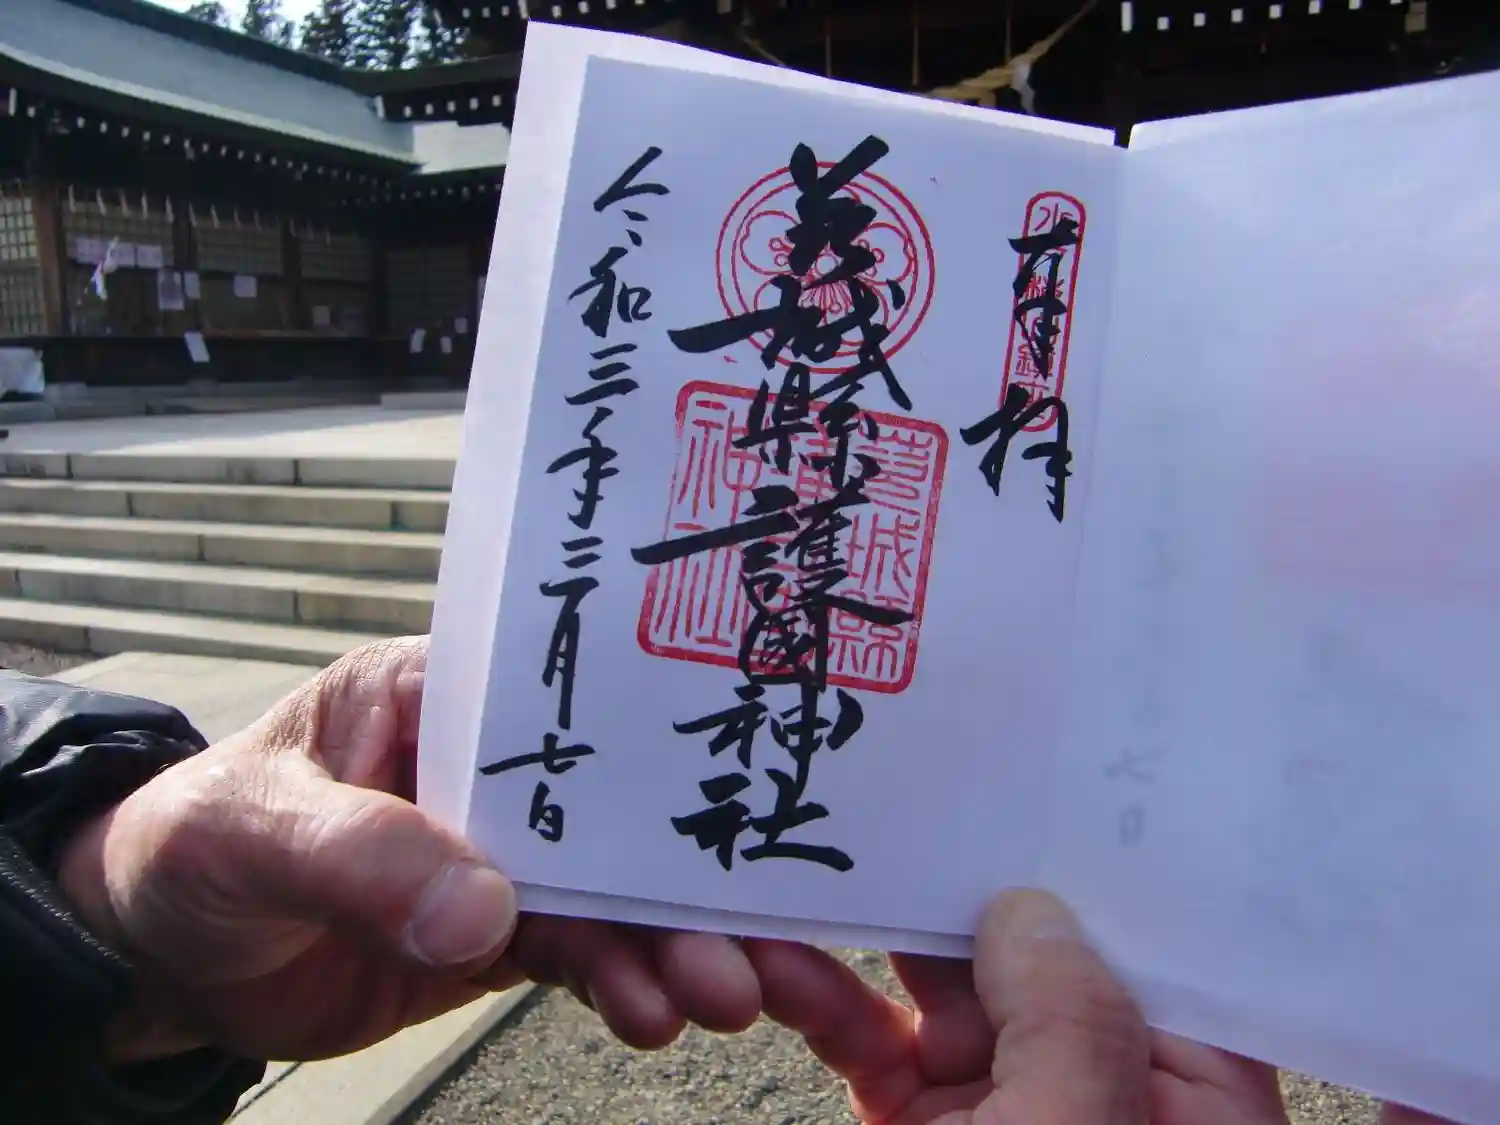 奉拝
茨城縣護國神社
令和三年三月七日
茨城縣
護國
神社